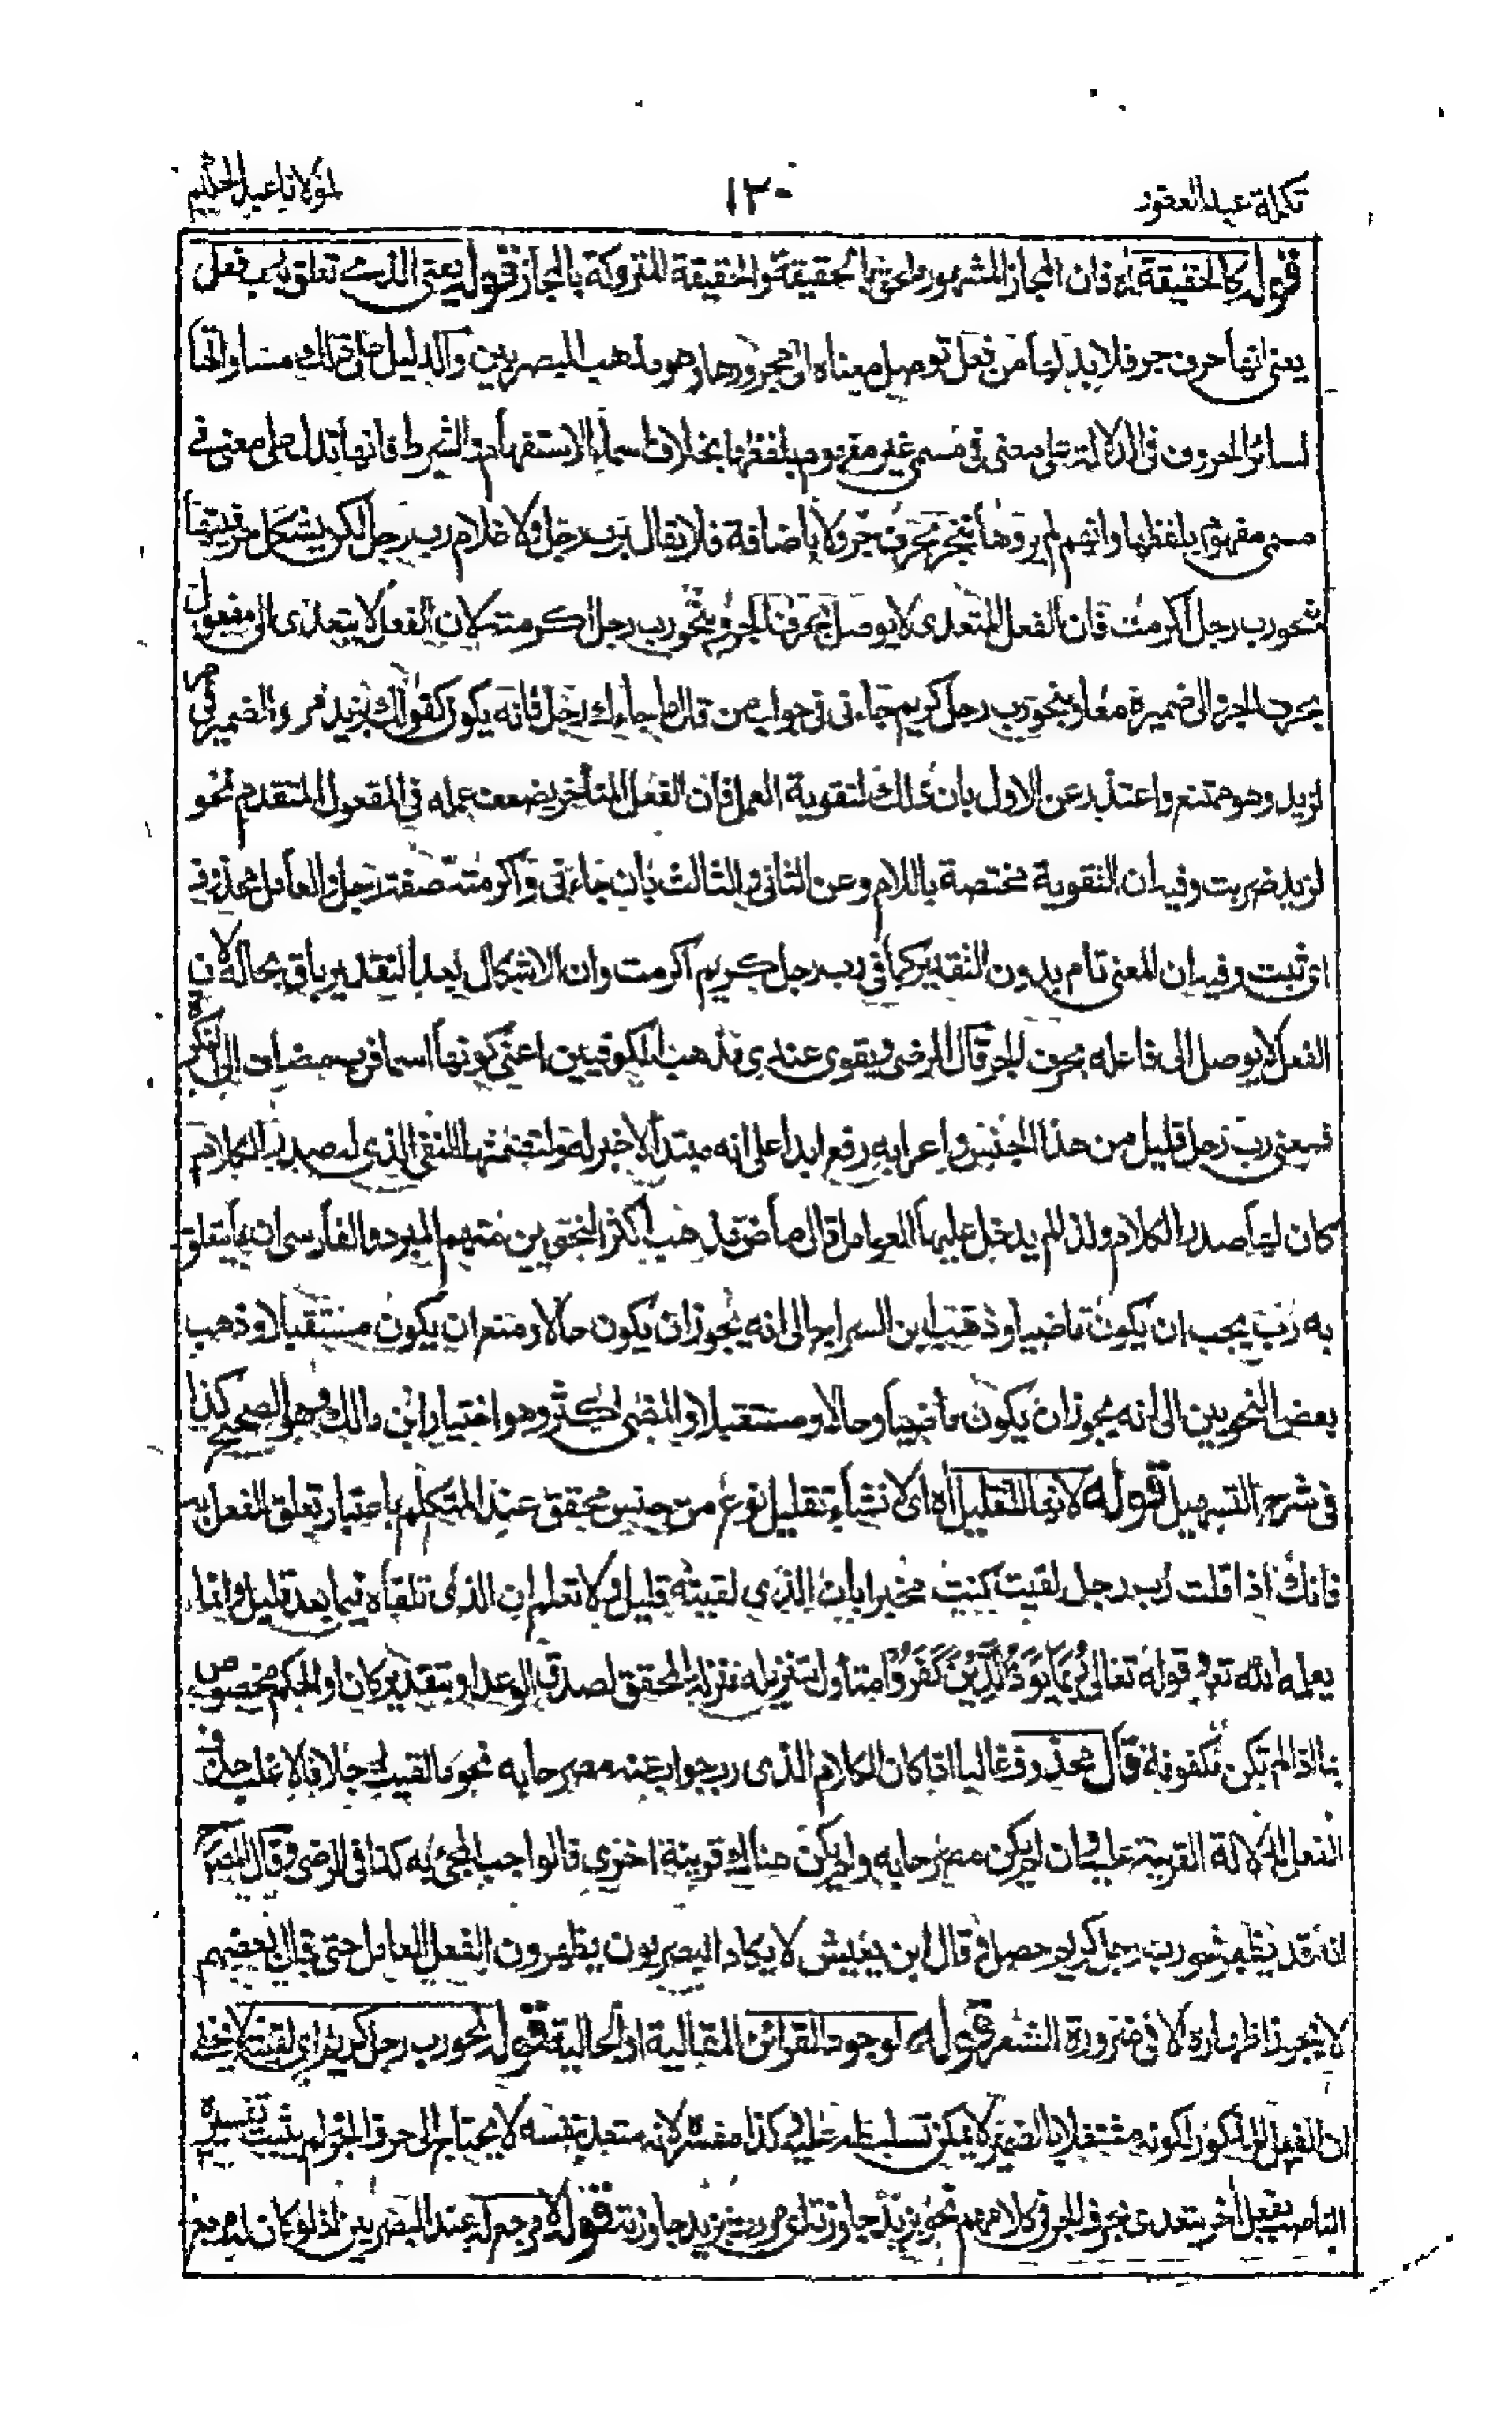 تكملة عبد الغفور
١٣٠
لمولانا عبد الحكيم
قوله كالحقيقة اه فان المجاز المشهور ملحق بالحقيقة والحقيقة المتروكة بالمجاز قوله يعني الذي تعلق به رب فعل
يعنى انها حرف جر فلا بد لها من فعل توصل معناه الى مجرورها وهو مذهب البصريين والدليل على ذلك مساواتها
لسائر الحروف فى الدلالة على معنى فى مسمى غير مفهوم بلفظها بخلاف اسماء الاستفهام والشرط فانها تدل على معنى فى
مسمى مفهوم بلفظها وانهم لم يروها تنجر بحرف جر ولا باضافة فلا يقال برب رجل ولا غلام رب رجل لكن يشكل حرفيتها
بنحو رب رجل اكرمت فان الفعل المتعدى لا يوصل بحرف الجر وبنحو رب رجل اكرمته لان الفعل لا يتعدى الى مفعول
بحرف الجر والى ضميره معا وبنحو رب رجل كريم جاءنى فى جواب من قال ما جاءك رجل فانه يكون كقولك بزيد مر والضمير فى مر
لزيد وهو ممتنع واعتذر عن الاول بان ذلك لتقوية العمل فان الفعل المتأخر يضعف عمله فى المفعول المتقدم نحو
لزيد ضربت وفيه ان التقوية مختصة باللام وعن الثانى والثالث بان جاءنى واكرمته صفة رجل والعامل محذوف
اى ثبت وفيه ان المعنى تام بدون التقدير كما فى رب رجل كريم اكرمت وان الاشكال بعد التقدير باق بحاله لان
الفعل لا يوصل الى فاعله بحرف الجر قال الرضى ويقوى عندى مذهب الكوفيين اعنى كونها اسما فرب مضاف الى النكرة
فمعنى رب رجل قليل من هذا الجنس واعرابه رفع ابدا على انه مبتدأ لا خبر له ولتضمنها النفى الذى له صدر الكلام
كان لها صدر الكلام ولذا لم يدخل عليها العوامل قال ماض ذهب اكثر النحويين منهم المبرد والفارسى ان ما يتعلق
به رب يجب ان يكون ماضيا وذهب ابن السراج الى انه يجوز ان يكون حالا ومنع ان يكون مستقبلا وذهب
بعض النحويين الى انه يجوز ان يكون ماضيا وحالا ومستقبلا والمضى اكثر وهو اختيار ابن مالك وهو الصحيح كذا
فى شرح التسهيل قوله لانها للتقليل اه اى لانشاء تقليل نوع من جنس محقق عند المتكلم باعتبار تعلق الفعل به
فانك اذا قلت رب رجل لقيت كنت مخبرا بان الذى لقيته قليل ولا تعلم ان الذى تلقاه فيما بعد قليل وانما
يعلمه الله تعالى وقوله تعالى رُبَمَا يَوَدُّ الَّذِيْنَ كَفَرُوْا متأول بتنزيله منزلة المحقق لصدق الوعد او بتقدير كان او الحكم مخصوص
بما اذا لم تكن مكفوفة قال محذوف غالبا اذا كان الكلام الذى رب جواب عنه مصرحا به نحو ما لقيت رجلا فالاغلب حذف
الفعل لدلالة القرينة عليه وان لم يكن مصرحا به ولم يكن هناك قرينة اخرى فالواجب المجئ به كذا فى الرضى وقال المصرح
انه قد يظهر نحو رب رجل كريم حصل وقال ابن يعيش لا يكاد البصريون يظهرون الفعل العامل حتى قال بعضهم
لا يجوز اظهاره الا فى ضرورة الشعر قوله لوجود القرائن المقالية او الحالية قوله نحو رب رجل كريم اى لقيته لا يخفى
ان الفعل المذكور لكونه مشتغلا بالضمير لا يمكن تسليطه عليه وكذا مفسره لانه متعد بنفسه لا يحتاج الى حرف الجر ولم يثبت تفسيره
الناصب بفعل آخر يتعدى بحرف الجر فى كلامهم نحو بزيد جاوزته اى مررت بزيد جاوزته قوله لا مرجع له عند البصريين اذ لو كان له مرجع